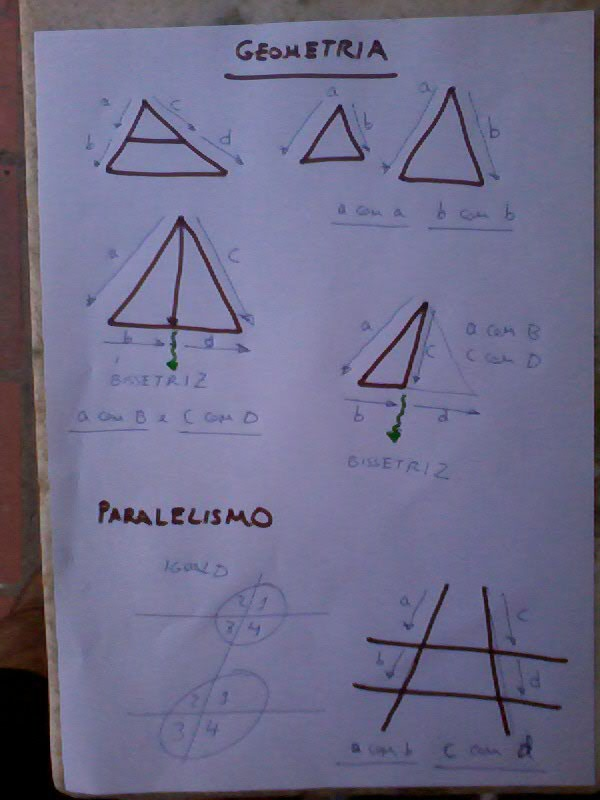 GEOMETRIA
a c
b d
a b
a b
a com a b com b
a c
b d
BISSETRIZ
a com B e C com D
a c
b d
a com B
C com D
BISSETRIZ
PARALELISMO
IGUAL
2 1
3 4
2 1
3 4
a c
b d
a com b c com d